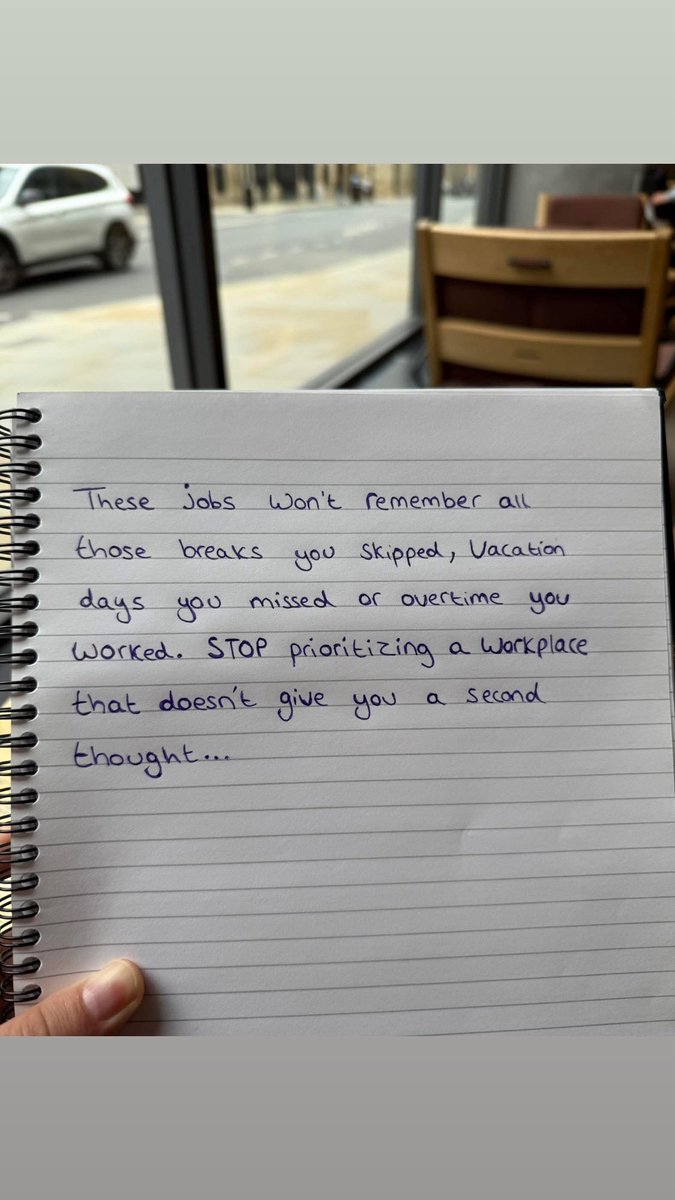 These jobs won't remember all
those breaks you skipped, Vacation
days you missed or overtime you
worked. STOP prioritizing a workplace
that doesn't give you a second
thought...